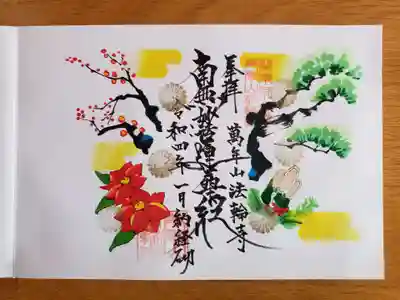 奉拝
萬年山法輪寺
南無妙法蓮華経
令和四年一月納経砌